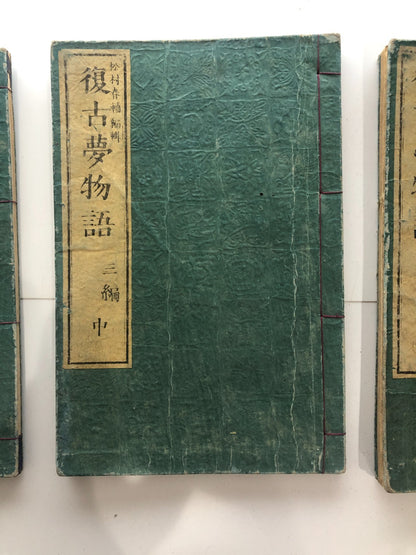 松村春輔編輯
復古夢物語
三編
中